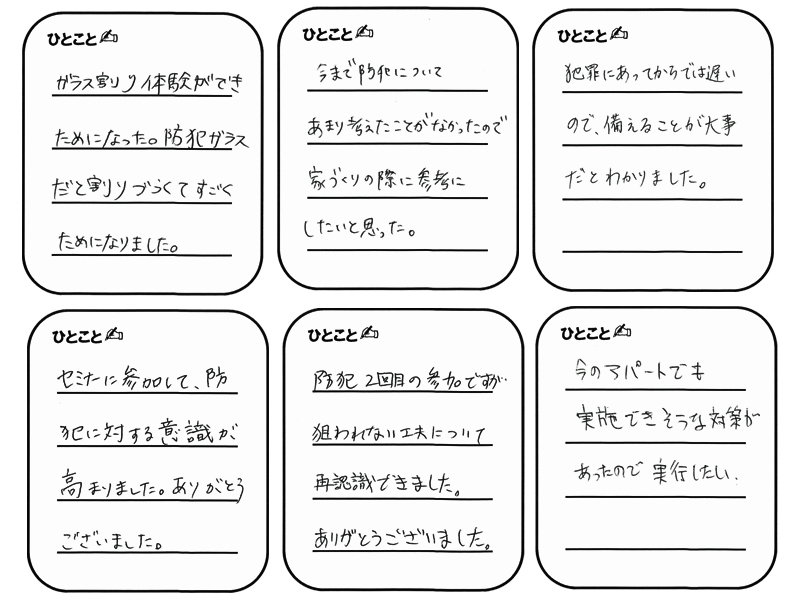 ひとこと
ガラス割り体験ができ
ためになった。防犯ガラス
だと割りづらくてすごく
ためになりました。
ひとこと
今まで防犯について
あまり考えたことがなかったので
家づくりの際に参考に
したいと思った。
ひとこと
犯罪にあってからでは遅い
ので、備えることが大事
だとわかりました。
ひとこと
セミナーに参加して、防
犯に対する意識が
高まりました。ありがとう
ございました。
ひとこと
防犯2回目の参加ですが…
狙われない工夫について
再認識できました。
ありがとうございました。
ひとこと
今のアパートでも
実施できそうな対策が
あったので実行したい.